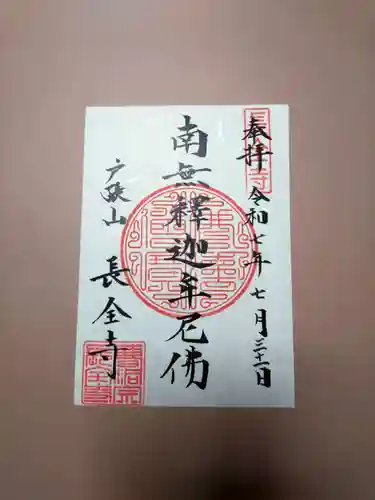 奉拝 令和七年七月三十一日
南無釋迦牟尼佛
戸跛山
長全寺